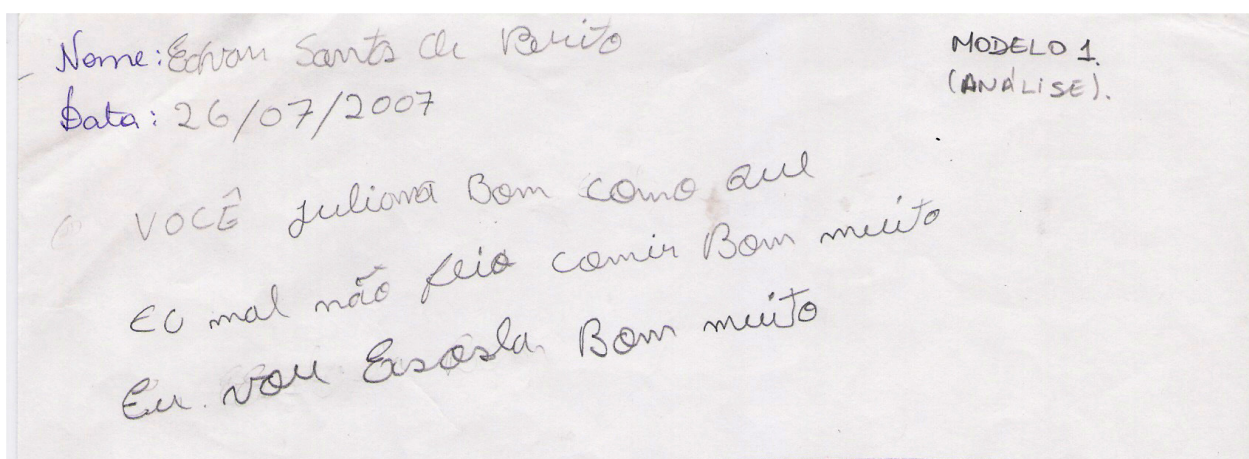 Nome: Edvan Santos de Berito
Data: 26/07/2007
MODELO 1.
(ANÁLISE).
VOCÊ juliana Bom como que
EU mal não feio comir Bom muito
Eu. vou Bom muito